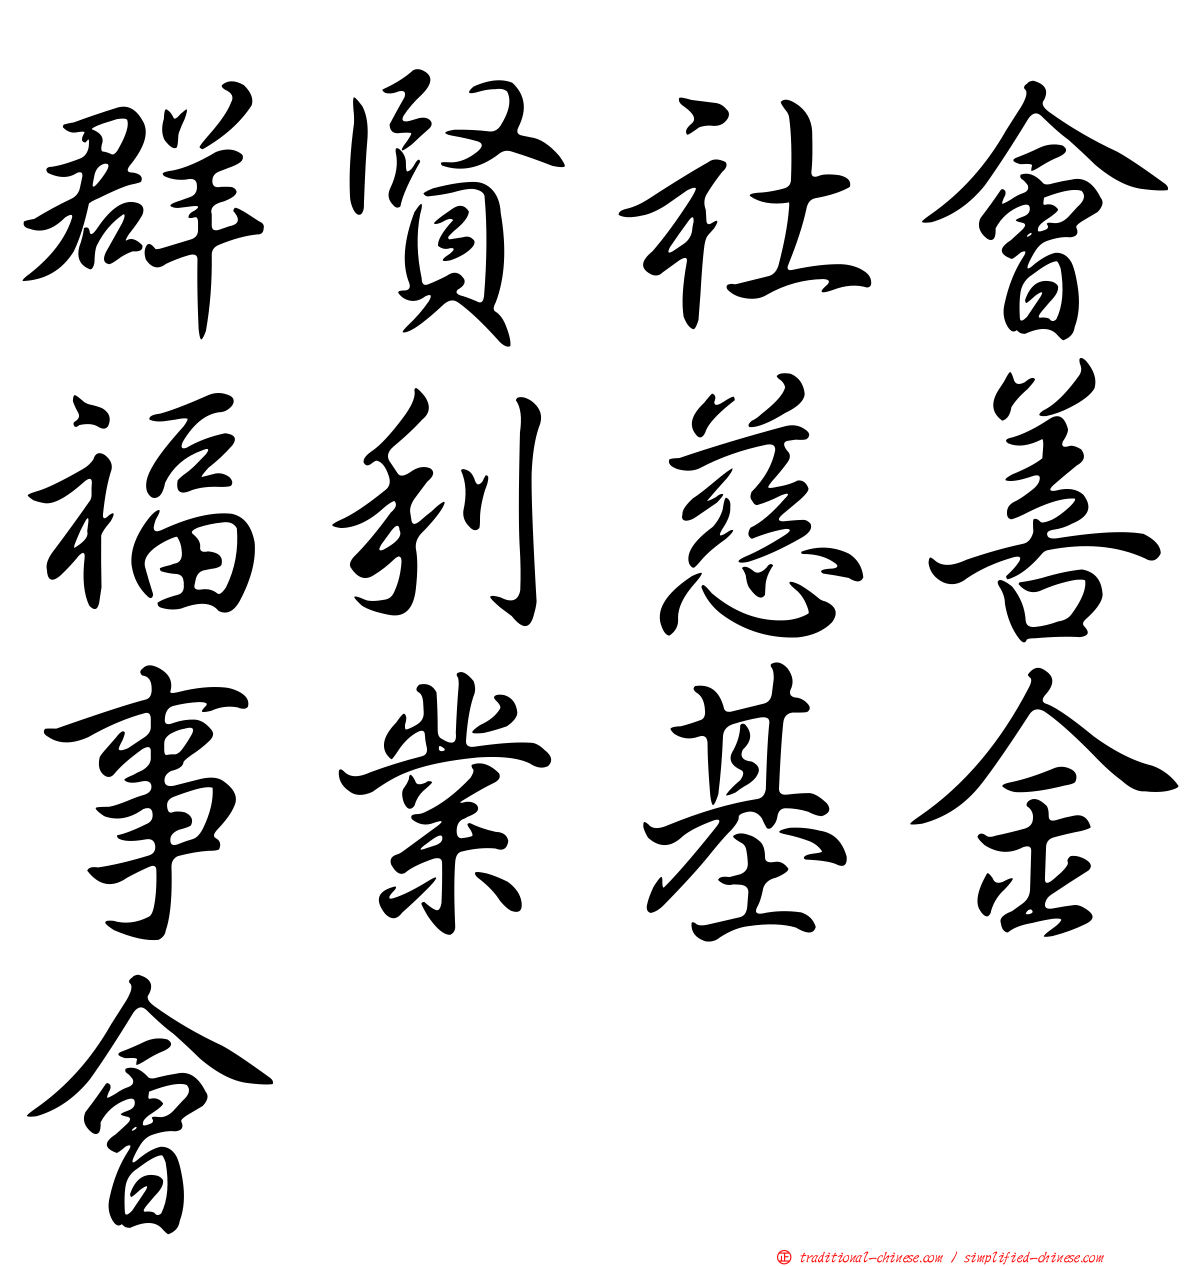 群賢社會
福利慈善
事業基金
會
㊣ traditional-chinese.com / simplified-chinese.com